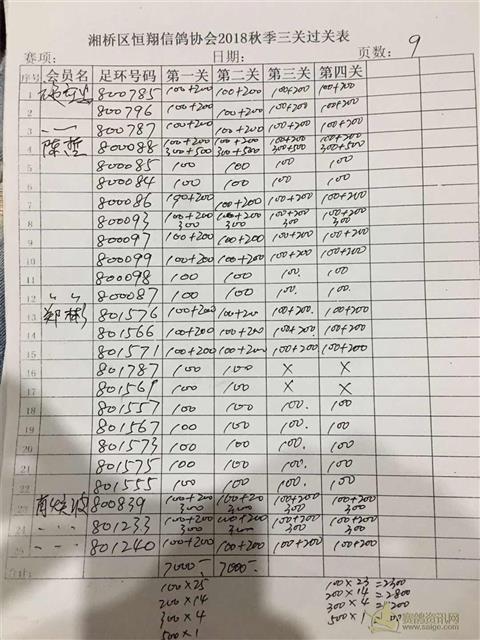 湘桥区恒翔信鸽协会2018秋季三关过关表
赛项: 日期: 页数: 9
序号 会员名 足环号码 第一关 第二关 第三关 第四关
1 800785 100+200 100+200 100+200 100+200
2 800796 100+200 100+200 100+200 100+200
3 800787 100+200 100+200 100+200 100+200
4 陈莹 800088 100+200 300+500 100+200 300+500 100+200 300+500 100+200 300+500
5 800085 100 100 100 100
6 800084 100 100 100 100
7 800086 100+200 100+200 100+200 100+200
8 800093 100+200 300 100+200 300 100+200 300 100+200 300
9 800097 100+200 100+200 100+200 100+200
10 800099 100+200 100+200 100+200 100+200
11 800098 100 100 100. 100
12 " " 800087 100 100. 100. 100
13 郑彬 801576 100+200 100+200 100+200. 100+200
14 801566 100+200 100+200 100+200. 100+200
15 801571 100+200 100+200 100+200 100+200
16 801787 100 100 X X
17 801561 100 100 X X
18 801557 100 100 100. 100
19 801567 100 100 100. 100
20 801573 100 100 100. 100
21 801575 100 100 100. 100
22 801555 100 100 100. 100
23 800839 100+200 300 100+200 300 100+200 300 100+200 300
24 801233 100+200 300 100+200 300 100+200 300 100+200 300
25 801240 100+200 100+200 100+200 100+200
7000- 7000-
100×25 100×23=2300
200×14 200×14=2800
300×4 300×4=1200
500×1 500×1
赛鸽资讯网
www.saige.com